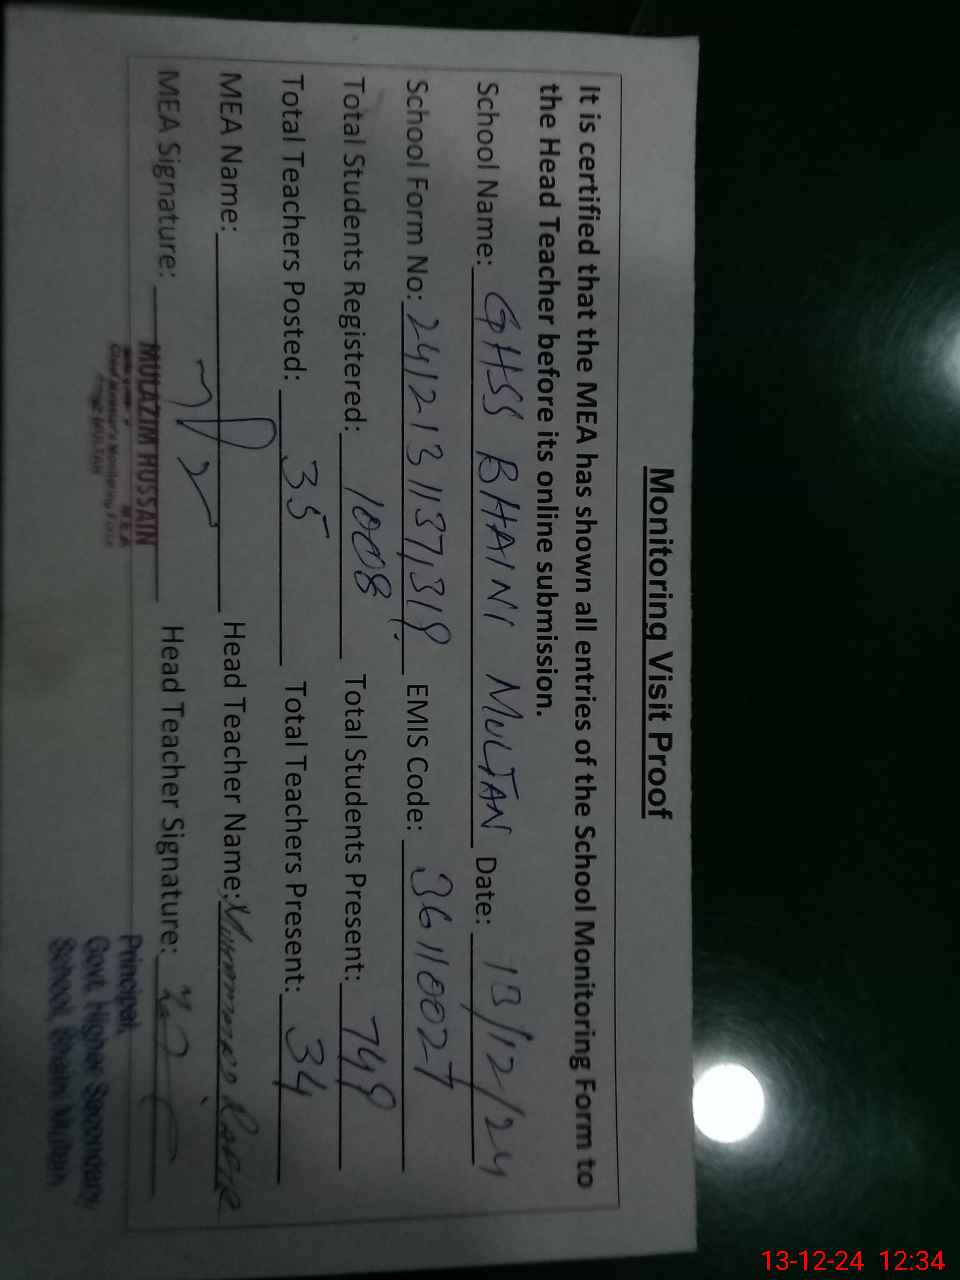 Monitoring Visit Proof
It is certified that the MEA has shown all entries of the School Monitoring Form to
the Head Teacher before its online submission.
School Name: GHSS BHAINI MULTAN Date: 13/12/24
School Form No: EMIS Code: 36110027
Total Students Registered: 1008 Total Students Present: 749
Total Teachers Posted: 35 Total Teachers Present: 34
MEA Name: Head Teacher Name:
MEA Signature: Head Teacher Signature:
MULAZIM HUSSAIN
MEA
Chief Minister's Monitoring Force
MULTAN
Principal,
Govt. Higher Secondary
School, Bhaini Multan
13-12-24 12:34